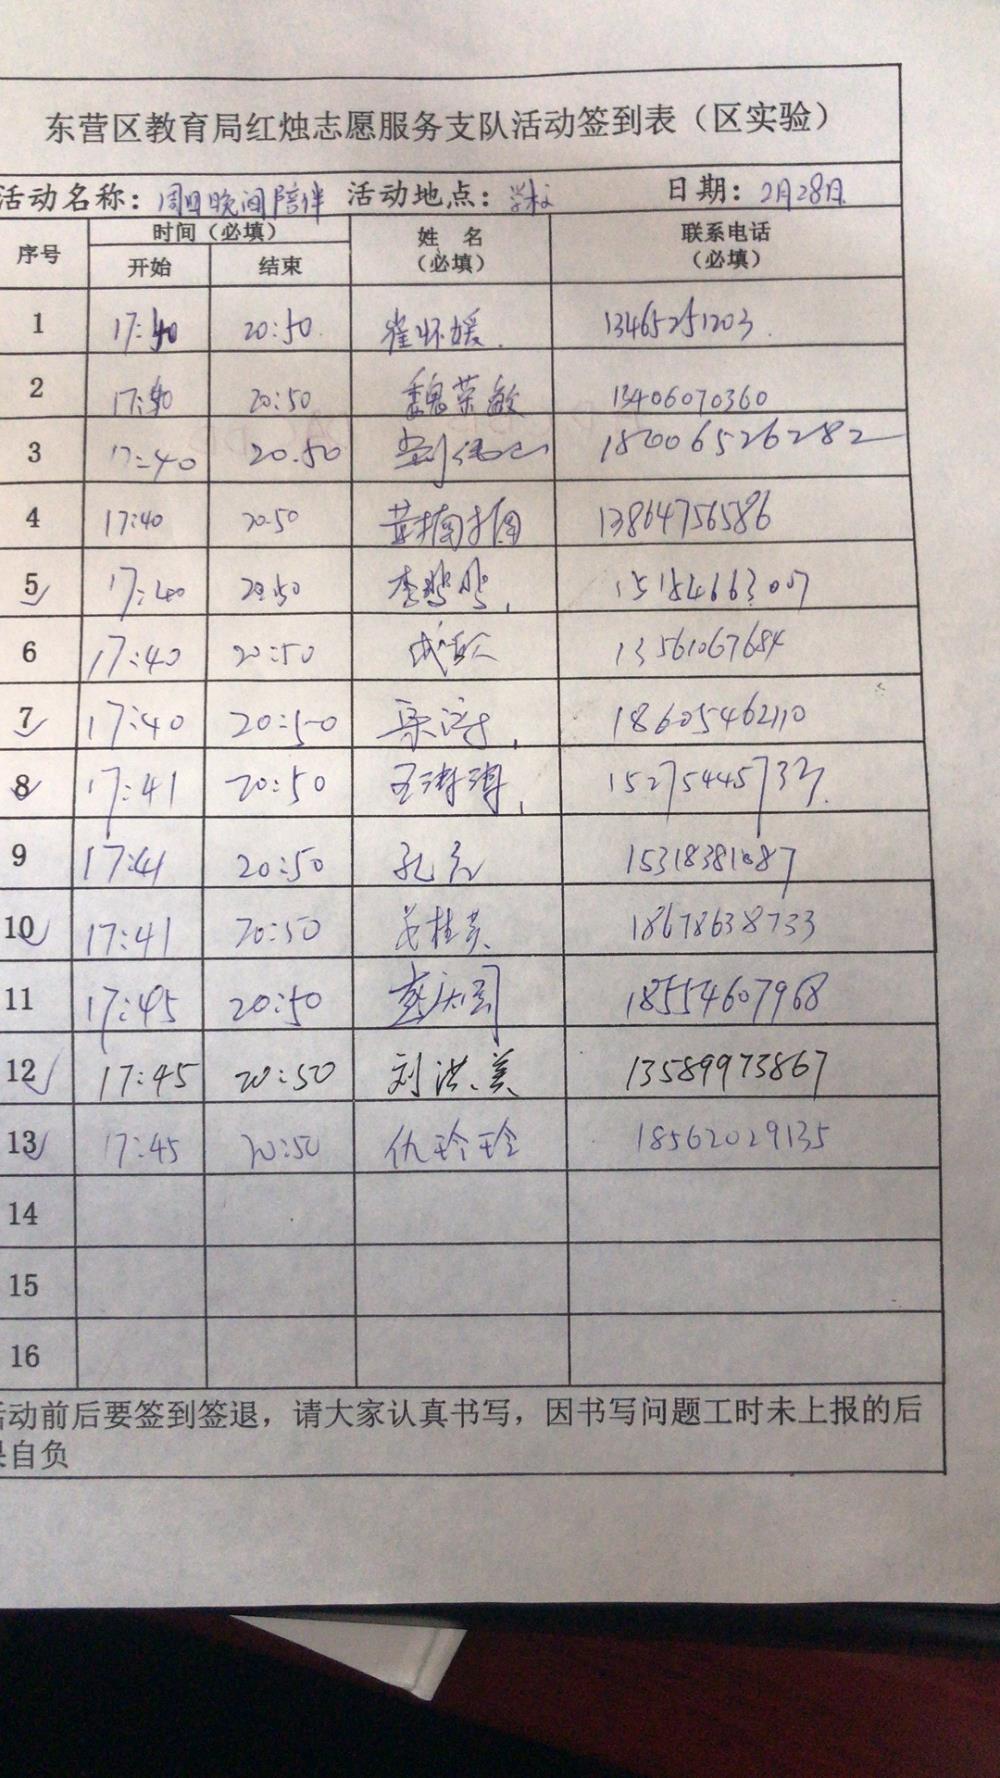 东营区教育局红烛志愿服务支队活动签到表（区实验）
活动名称：周日晚间陪伴 活动地点：学校 日期：2月28日
序号 时间（必填） 姓 名（必填） 联系电话（必填）
开始 结束
1 17:40 20:50 崔怀媛 13465251203
2 17:40 20:50 魏荣敏 13406070360
3 17:40 20:50 18006526282
4 17:40 20:50 黄楠楠 13864756586
5 17:40 20:50 李鸳鸳 15184663007
6 17:40 20:50 13561067684
7 17:40 20:50 18605462110
8 17:41 20:50 王涛涛 15275445733
9 17:41 20:50 15318381087
10 17:41 20:50 18678638733
11 17:45 20:50 18554607968
12 17:45 20:50 刘洪美 13589973867
13 17:45 20:50 仇玲玲 18562029135
14
15
16
活动前后要签到签退，请大家认真书写，因书写问题工时未上报的后
果自负